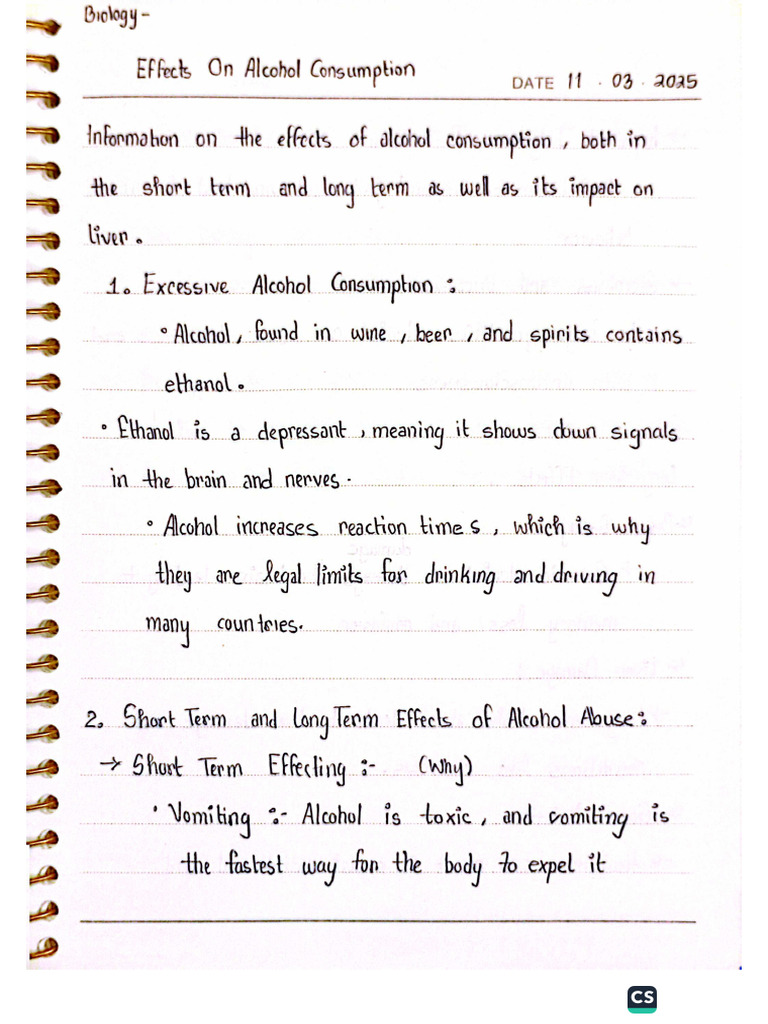 Biology-
Effects On Alcohol Consumption
DATE 11 . 03 . 2025
Information on the effects of alcohol consumption, both in
the short term and long term as well as its impact on
liver.
1. Excessive Alcohol Consumption :
• Alcohol, found in wine, beer, and spirits contains
ethanol.
• Ethanol is a depressant, meaning it shows down signals
in the brain and nerves.
• Alcohol increases reaction times, which is why
they are legal limits for drinking and driving in
many countries.
2. Short Term and Long Term Effects of Alcohol Abuse:
→ Short Term Effecting :- (Why)
• Vomiting :- Alcohol is toxic, and vomiting is
the fastest way for the body to expel it
CS